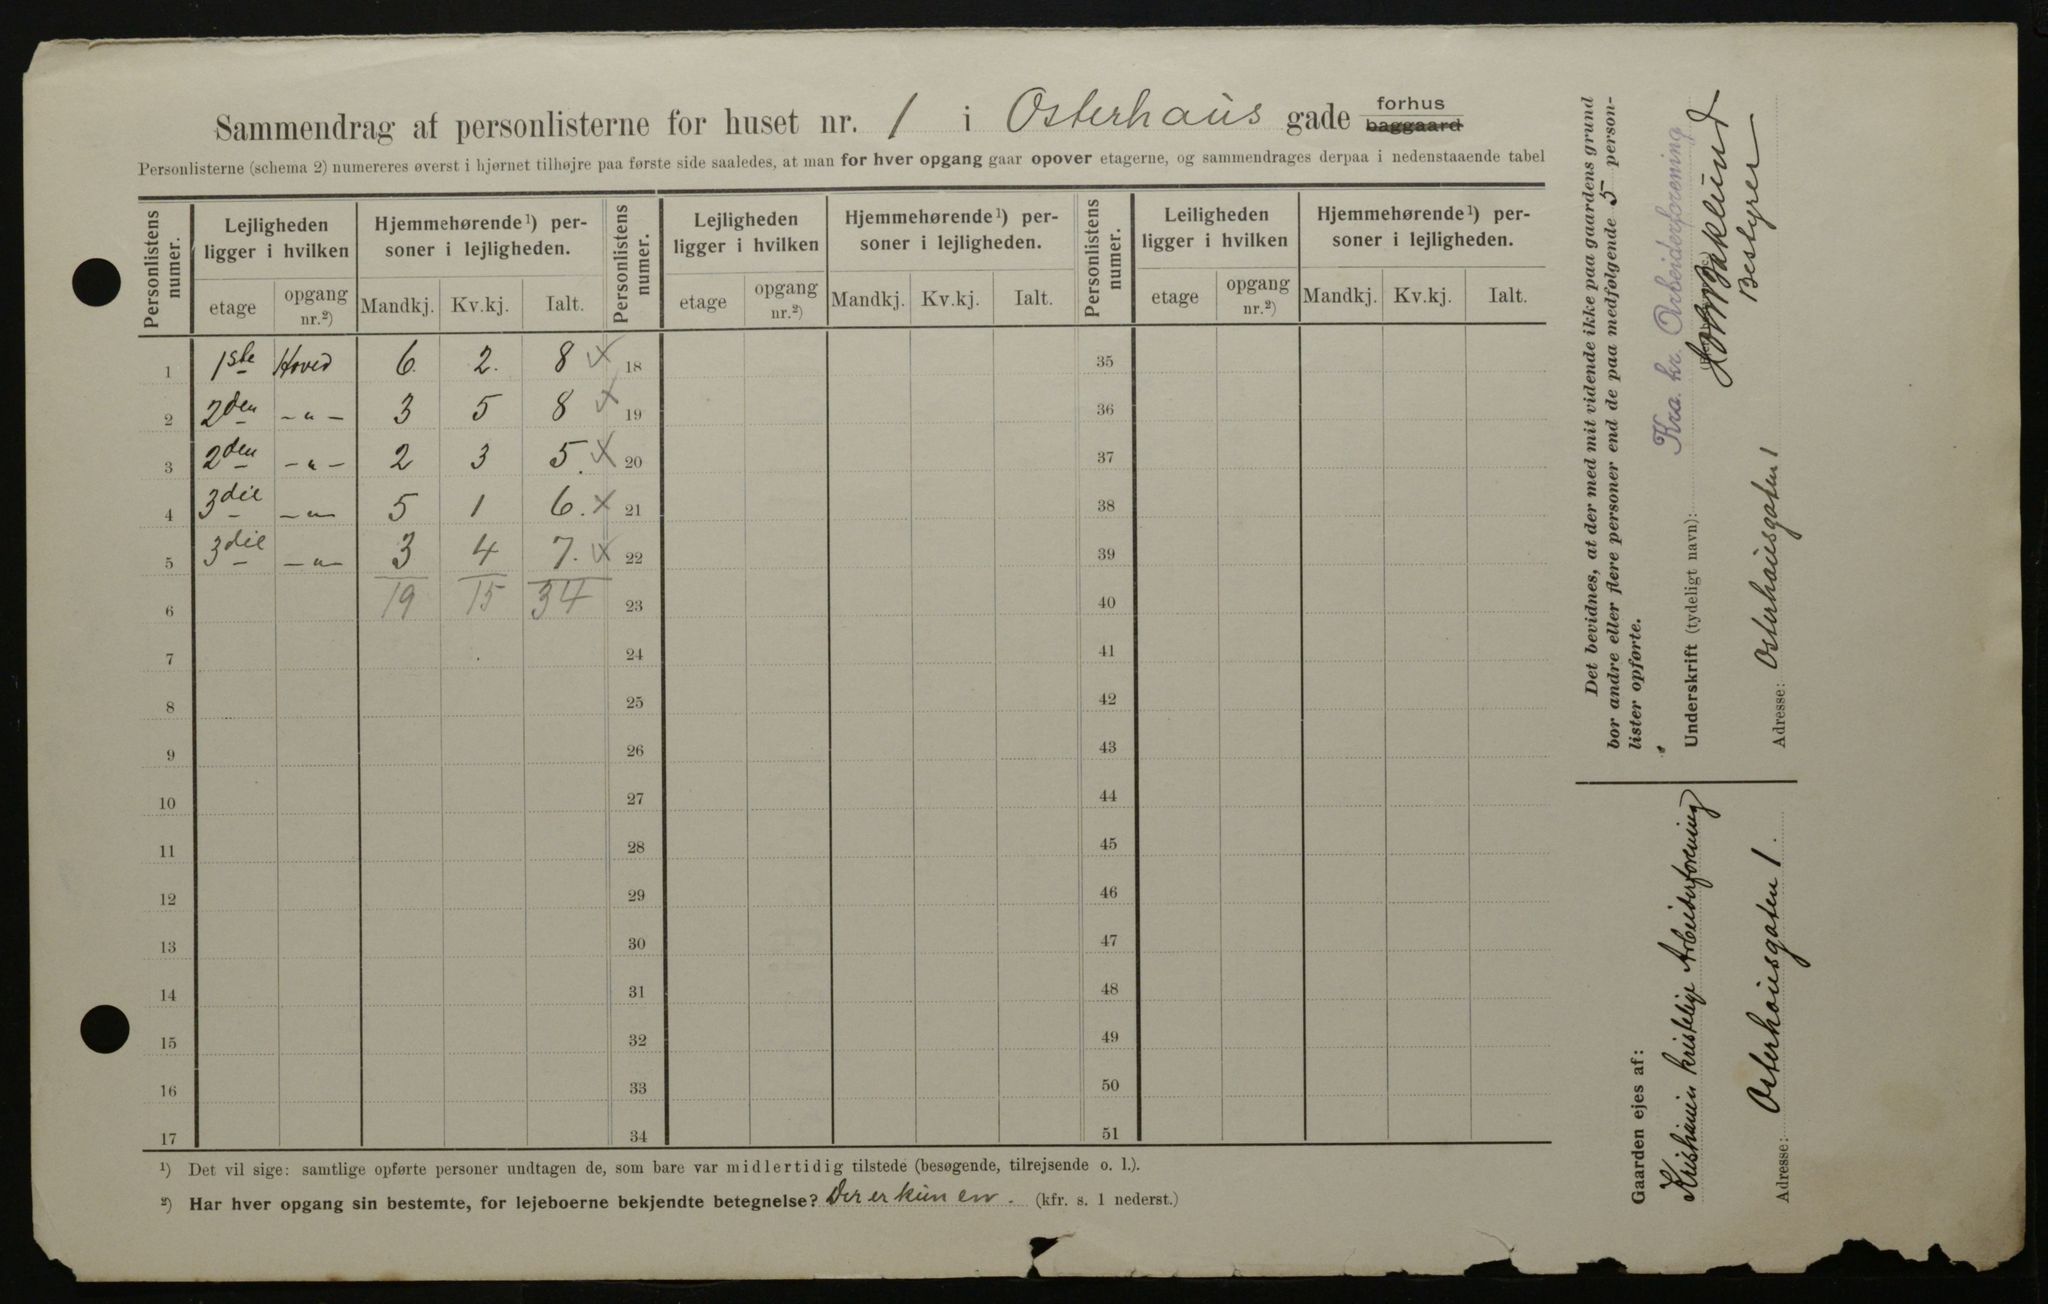 Sammendrag af personlisterne for huset nr. 1 i Osterhaus gade forhus baggaard
Personlisterne (schema 2) numereres øverst i hjørnet tilhøjre paa første side saaledes, at man for hver opgang gaar opover etagerne, og sammendrages derpaa i nedenstaaende tabel
Personlistens numer. Lejligheden ligger i hvilken Hjemmehørende¹) personer i lejligheden. Personlistens numer. Lejligheden ligger i hvilken Hjemmehørende¹) personer i lejligheden. Personlistens numer. Leiligheden ligger i hvilken Hjemmehørende¹) personer i lejligheden.
etage opgang nr.²) Mandkj. Kv.kj. Ialt. etage opgang nr.²) Mandkj. Kv.kj. Ialt. etage opgang nr.²) Mandkj. Kv.kj. Ialt.
1 1ste Hoved 6. 2. 8 18 35
2 2den - " - 3 5 8 19 36
3 2den - " - 2 3 5. 20 37
4 3die - " - 5 1 6. 21 38
5 3die - " - 3 4 7. 22 39
6 19 15 34 23 40
7 24 41
8 25 42
9 26 43
10 27 44
11 28 45
12 29 46
13 30 47
14 31 48
15 32 49
16 33 50
17 34 51
¹) Det vil sige: samtlige opførte personer undtagen de, som bare var midlertidig tilstede (besøgende, tilrejsende o. l.).
²) Har hver opgang sin bestemte, for lejeboerne bekjendte betegnelse? Der er kun en. (kfr. s. 1 nederst.)
Det bevidnes, at der med mit vidende ikke paa gaardens grund
bor andre eller flere personer end de paa medfølgende 5 person-
lister opførte.
Kra. kr. Arbeiderforening
Underskrift (tydeligt navn): Baklund
Bestyrer
Adresse: Osterhausgaten 1
Gaarden ejes af:
Kristiania kristelige Arbeiderforening
Adresse: Osterhausgaten 1.